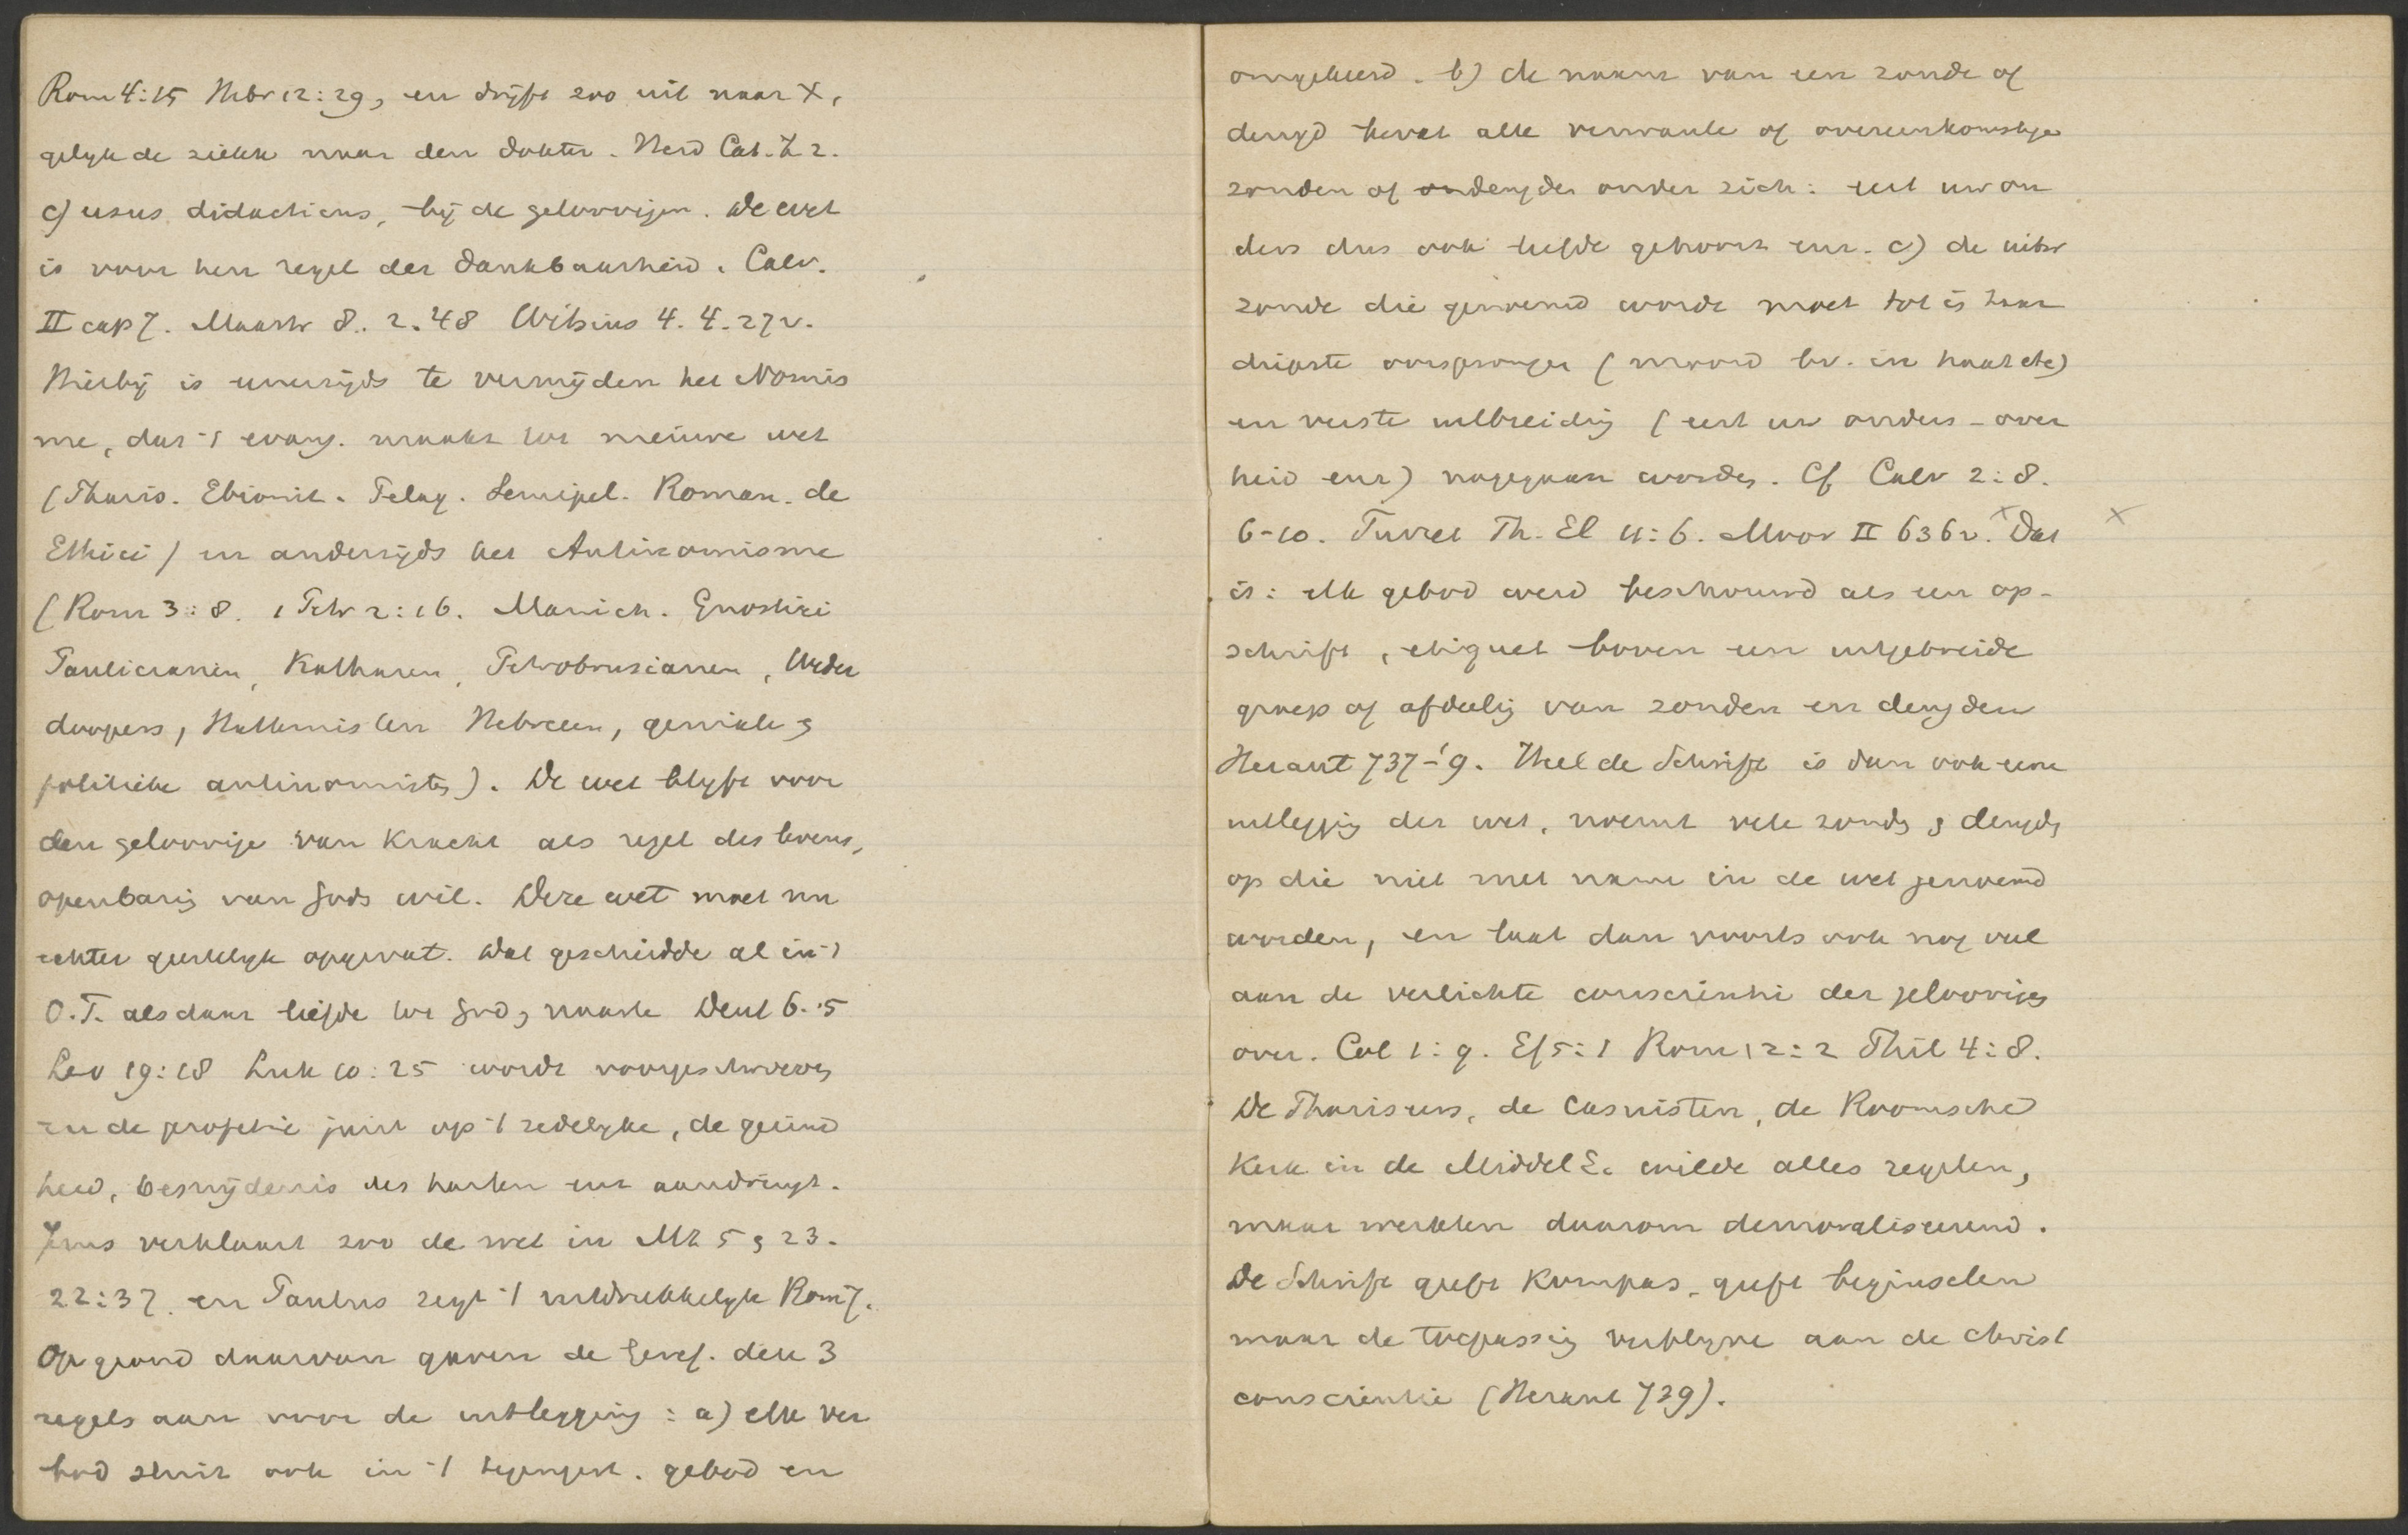 Rom 4:15 Hebr 12:29, en drijft zoo uit naar X,
gelijk de zieke naar den dokter. Heid Cat. Z 2.
c) usus didacticus, bij de geloovigen. De wet
is voor hen regel der dankbaarheid. Calv.
II cap 7. Maastr 8. 2. 48 Witsius 4. 4. 27v.
Hierbij is eenerzijds te vermijden het Nomis
me, dat 't evang. maakt tot nieuwe wet
(Pharis. Ebionit. Pelag. Semipel. Roman. de
Ethici) en anderzijds het Antinomisme
(Rom 3:8. 1 Petr 2:16. Manich. Gnostici
Paulicianen, Katharen, Petrobrusianen, Weder
doopers, Hattemisten Hebreen, geniale &
politieke antinomisten). De wet blijft voor
den geloovige van kracht als regel des levens,
openbaring van Gods wil. Deze wet moet nu
echter geestelijk opgevat. Dat geschiedde al in 't
O.T. als daar liefde tot God & naaste Deut 6:5
Lev 19:18 Luk 10:25 wordt voorgeschreven
en de profetie juist op 't zedelijke, de gezind
heid, besnijdenis des harten enz aandringt.
Jezus verklaart zoo de wet in Mt 5 & 23.
22:37. en Paulus zegt 't uitdrukkelijk Rom 7.
Op grond daarvan gaven de Geref. deze 3
regels aan voor de uitlegging: a) elk ver
bod sluit ook in 't tegengest. gebod en
omgekeerd. b) de naam van een zonde of
deugd bevat alle verwante of overeenkomstige
zonden of ondeugden onder zich: eert uw ou
ders dus ook liefde gehoorz enz. c) de uitw
zonde die genoemd wordt moet tot in haar
diepste oorsprongen (moord bv. in haat etc)
en verste uitbreiding (eert uw ouders - over
heid enz) nagegaan worden. Cf Calv 2:8.
6-10. Turret Th. El 11:6. Moor II 636v. X Dat X
is: elk gebod werd beschouwd als een op-
schrift, etiquet boven een uitgebreide
groep of afdeeling van zonden en deugden
Heraut 737-'9. Heel de Schrift is dan ook eene
uitlegging der wet, noemt vele zonden & deugden
op die niet met name in de wet genoemd
worden, en laat dan voorts ook nog veel
aan de verlichte conscientie der geloovigen
over. Col 1:9. Ef 5:1 Rom 12:2 Phil 4:8.
De Pharizeen, de Casuisten, de Roomsche
Kerk in de Middel E. wilde alles regelen,
maar werkten daarom demoraliseerend.
De Schrift geeft kompas, geeft beginselen
maar de toepassing verblijve aan de christ
conscientie (Heraut 739).